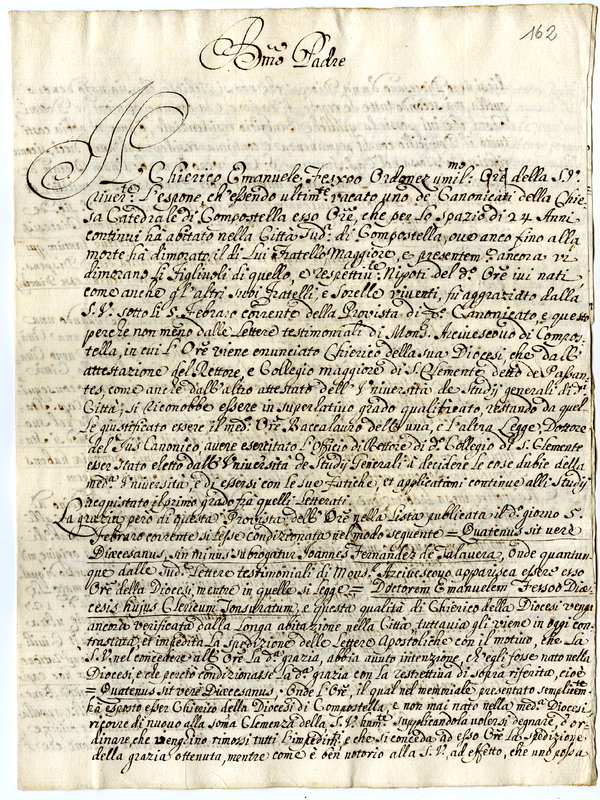 162
Bmo Padre
Il Chierico Emanuele Feyxoo Ordonez umilmo Orre della S.V.
River.te L'espone ch'essendo ultim.te vacato uno de Canonicati della Chie=
sa Catedrale di Compostella esso Ore, che per lo spazio di 24 Anni
continui hà abitato nella Città sud.a di Compostella, ove anco fino alla
morte hà dimorato il di Lui Fratello Maggiore, e presentem.te ancora vi
dimorano Li Figliuoli di quello, e respettiv.te Nipoti del d.o Ore ivi nati,
come anche gl'altri suoi Fratelli, e Sorelle viventi, fù aggraziato dalla
S.V. sotto li 5. Febraro corrente della Provista di d.o Canonicato, e questo
perche non meno dalle Lettere testimoniali di Mons. Arcivescovo di Compos=
tella, in cui l'Ore viene enunciato Chierico della sua Diocesi, che dall'
attestazione del Rettore, e Collegio maggiore di S. Clemente detto de Pasan=
tes, come anche dall'altro attestato dell'Università de Studij generali di d.a
Città; si riconobbe essere in superlativo grado qualificato, restando da quel=
le giustificato essere il med.o Ore Baccalauro dell'una, e l'altra Legge, Dottore
del Jus Canonico, avere esercitato l'Officio di Rettore di d.o Collegio di S. Clemente
esser stato eletto dall'Università de Studij Generali à decidere le cose dubie della
med.a Università, e di essersi con le sue fatiche, et applicationi continue alli Studij
acquistato il primo grado frà quelli Letterati.
La grazia però di questa Provista dell'Ore nella Lista publicata il d.o giorno 5.
Febraro corrente si lesse condizionata nel modo seguente = Quatenus sit verè
Diocesanus, sin minus subrogatur Joannes Fernandez de Talavera, Onde quantun=
que dalle sud.e Lettere testimoniali di Mons.r Arcivescovo apparisca essere esso
Ore della Diocesi, mentre in quelle si legge = Doctorem Emanuelem Feysoo Diæ=
cesis hujus Clericum Tonsuratum, e questa qualità di Chierico della Diocesi venga
ancora verificata dalla Longa abitazione nella Città, tuttavia gli viene in oggi con=
trastata, et impedita La spedizione delle Lettere Apostoliche con il motivo, che La
S.V. nel concedere all'Ore La d.a grazia, abbia avuto intenzione, ch'egli fosse nato nella
Diocesi, e che perciò condizionasse La d.a grazia con La restrettiva di sopra riferita, cioè
= Quatenus sit verè Diæcesanus. Onde l'Ore, il qual nel memoriale presentato semplicem.te
hà esposto esser Chierico della Diocesi di Compostella, e non mai nato nella med.a Diocesi,
ricorre di nuovo alla soma Clemenza della S.V. hum.te supplicandola volersi degnare, d'or=
dinare, che vengano rimossi tutti l'impedim.ti e che si conceda ad esso Ore La spedizione
della grazia ottenuta, mentre come è ben notorio alla S.V. ad effetto, che uno possa